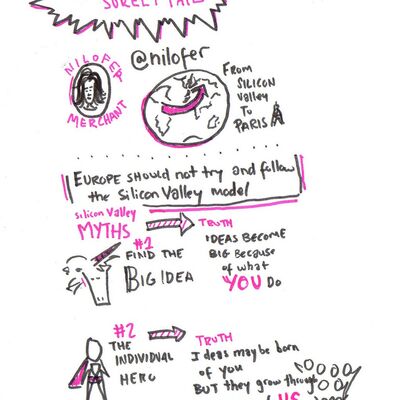 NILOFER
MERCHANT
@nilofer
FROM
SILICON
Valley
TO
PARIS
EUROPE SHOULD NOT TRY and follow
the Silicon Valley model
Silicon Valley
MYTHS
TRUTH
#1
FIND THE
BIG IDEA
IDEAS BECOME
BIG Because
of what
YOU DO
#2
THE
INDIVIDUAL
HERO
TRUTH
Ideas may be born
of you
BUT they grow through
US